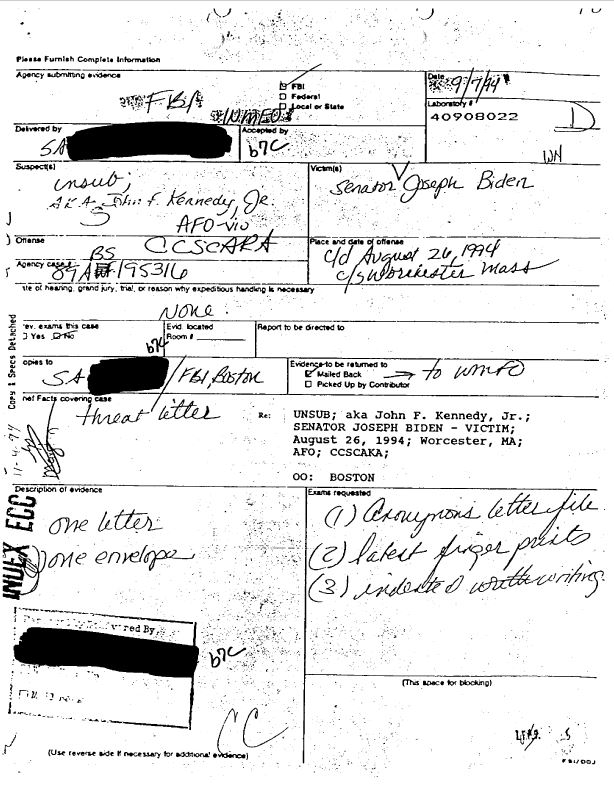 Please Furnish Complete Information
Agency submitting evidence
FBI
WMFO
FBI
Federal
Local or State
Date
9/7/94
Laboratory #
40908022
D
WN
Delivered by
SA
Accepted by
b7C
Suspect(s)
unsub;
AKA John F. Kennedy, Jr.
AFO-
Victim(s)
Senator Joseph Biden
Offense
CCSCAKA
Place and date of offense
c/d August 26, 1994
c/s Worchester Mass
Agency case #
BS
89A 195316
te of hearing, grand jury, trial, or reason why expeditious handling is necessary
None.
rev. exams this case
Yes No
b7C
Evid. located
Room #
Report to be directed to
opies to
SA /FBI, Boston
Evidence to be returned to
Mailed Back → to WMFO
Picked Up by Contributor
Copy & Specs Detached
ief Facts covering case
threat letter
Re: UNSUB; aka John F. Kennedy, Jr.;
SENATOR JOSEPH BIDEN - VICTIM;
August 26, 1994; Worcester, MA;
AFO; CCSCAKA;
OO: BOSTON
11-4-94
Description of evidence
one letter
one envelope
INDEX ECC
Exams requested
(1) Anonymous letter file
(2) latest finger prints
(3) indented writing
red By
b7C
(This space for blocking)
CC
(Use reverse side if necessary for additional evidence)
FBI/DOJ